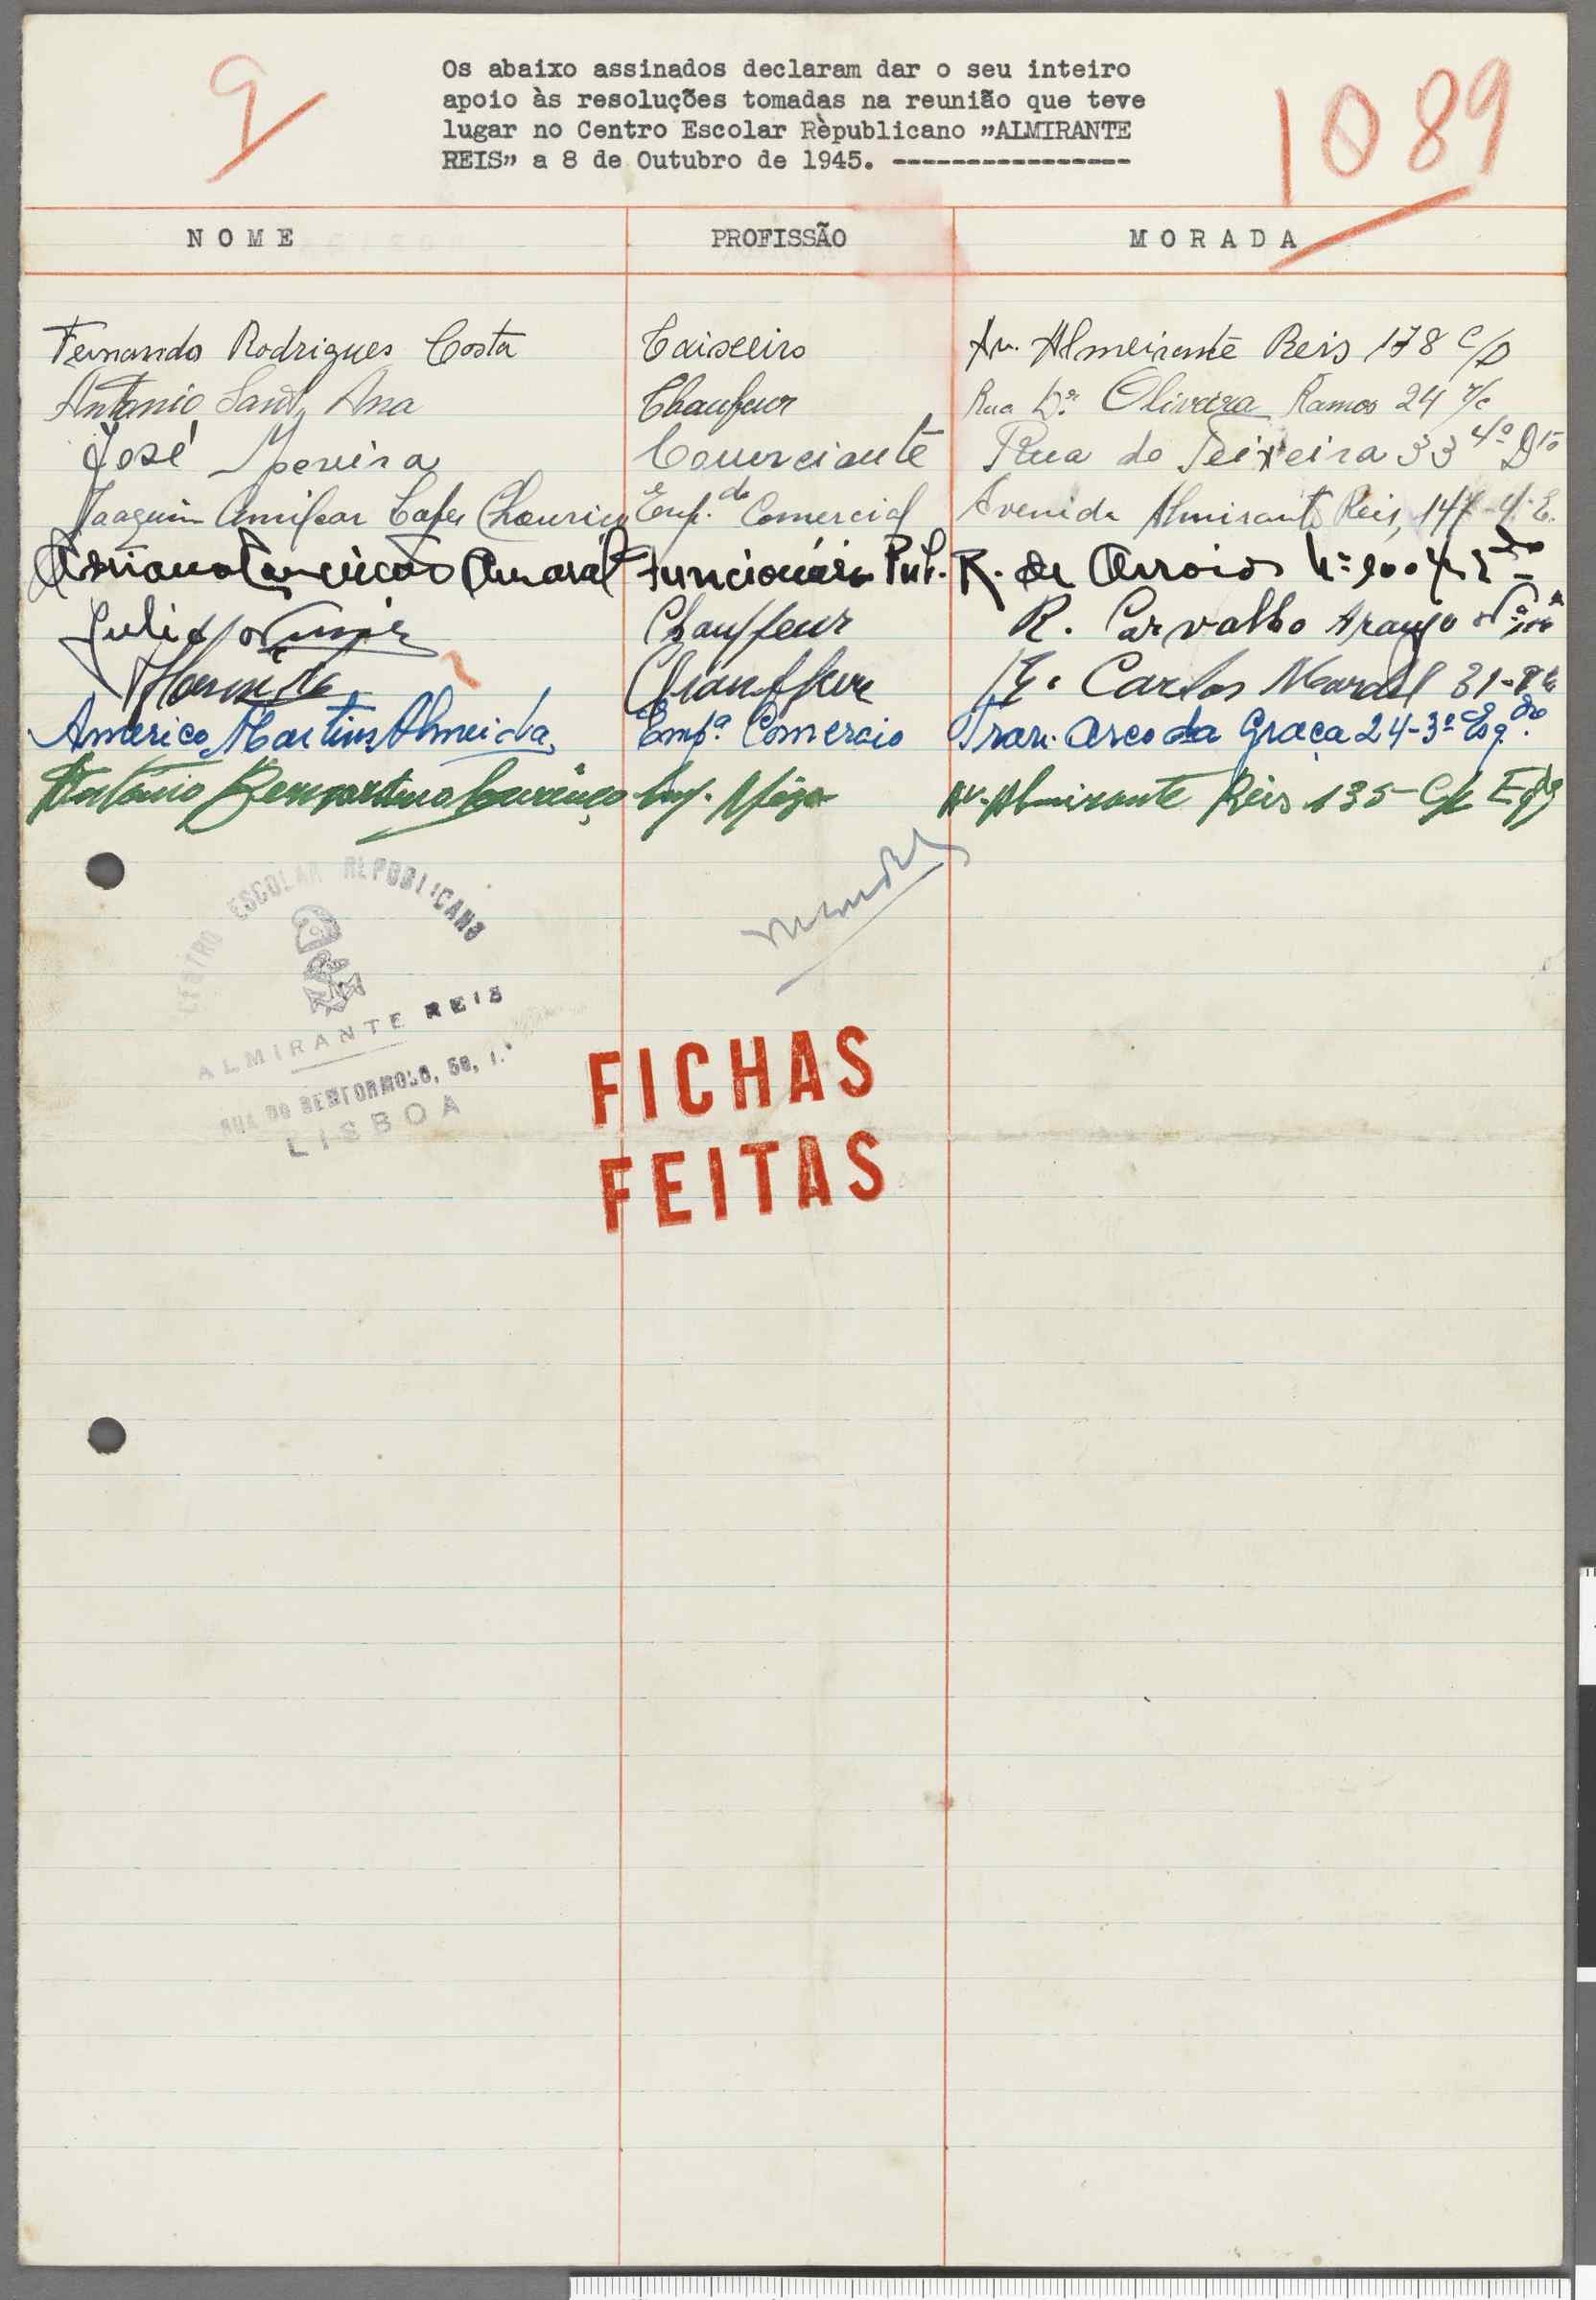 9
1089
Os abaixo assinados declaram dar o seu inteiro
apoio às resoluções tomadas na reunião que teve
lugar no Centro Escolar Rèpublicano "ALMIRANTE
REIS" a 8 de Outubro de 1945. ----------------
NOME PROFISSÃO MORADA
Fernando Rodrigues Costa Caixeiro Av. Almeirante Reis 178 c/D
Antonio Sant'Ana Chaufeur Rua Dr. Oliveira Ramos 24 r/c
José Pereira Comerciante Rua do Teixeira 33 4º Dto
Joaquim Amilcar Emp.do Comercial Avenida Almirante Reis, 147-4º E.
Amaral Funcionário Pub. R. de Arroios
Julio Chauffeur R. Carvalho Araujo
Chauffeur R. Carlos Mardel 31
Americo Martins Almeida Empº Comercio Trav. Arco da Graça 24-3º Esq.
António Lourenço Av. Almirante Reis 135
CENTRO ESCOLAR REPUBLICANO
ALMIRANTE REIS
RUA DO BENFORMOSO, 50, 1.º
LISBOA
FICHAS
FEITAS